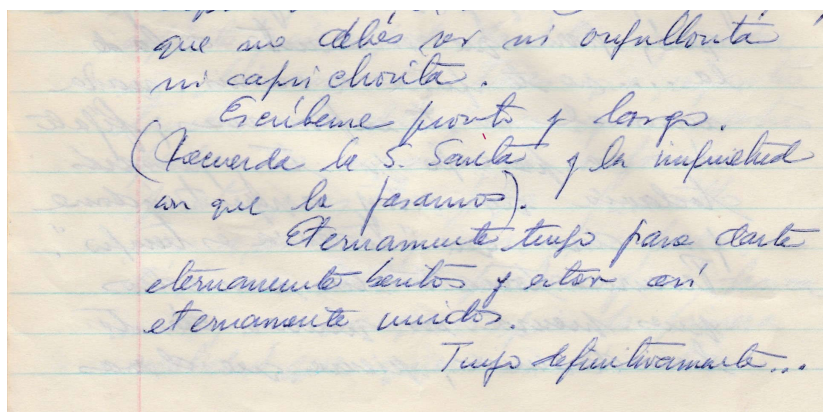 que no debés ser ni orgullosita
ni caprichosita.
Escríbeme pronto y largo.
(Recuerda la S. Santa y la inquietud
con que la pasamos).
Eternamente tuyo para darte
eternamente besitos y estar así
eternamente unidos.
Tuyo definitivamente...